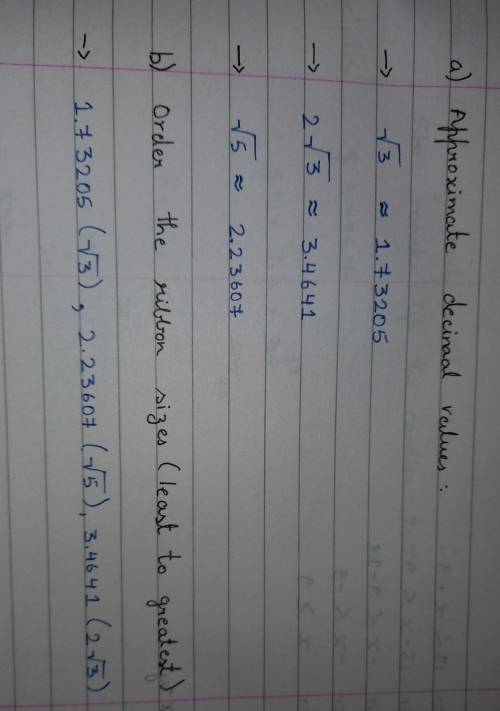 a) Approximate decimal values :
→ √3 ≈ 1.73205
→ 2√3 ≈ 3.4641
→ √5 ≈ 2.23607
b) Order the ribbon sizes (least to greatest)
→ 1.73205 (√3), 2.23607 (√5), 3.4641 (2√3)